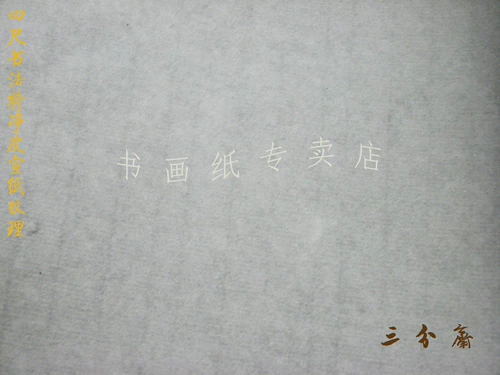 四尺书法特净皮宣纸纹理
书画纸专卖店
三分斋